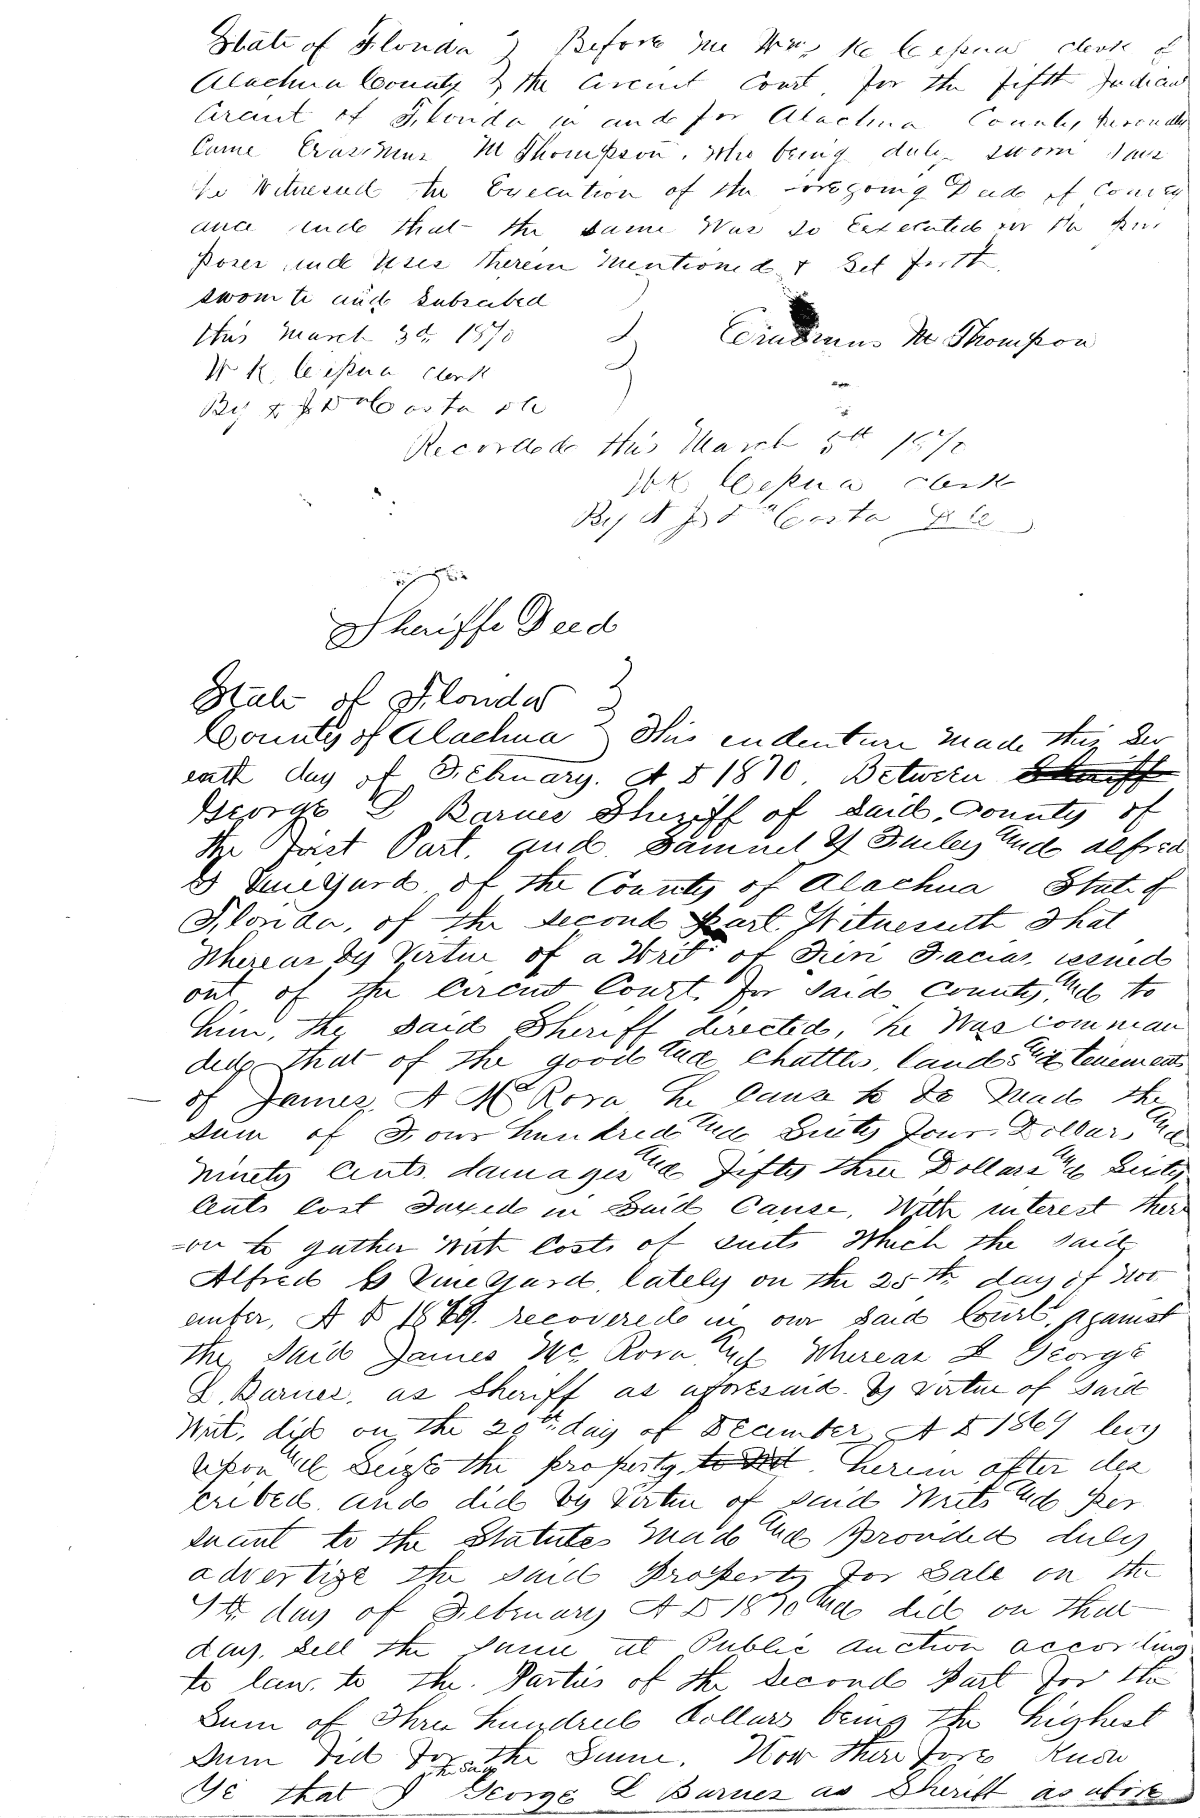 State of Florida } Before me Wm K Cessna clerk of
Alachua County } the Circuit Court, for the fifth Judicial
Circuit of Florida in and for Alachua County, personally
Came Erasmus M Thompson, who being duly sworn says
he Witnessed the Execution of the foregoing Deed of Convey
ance and that the same Was so Executed for the pur
poses and Uses therein mentioned & Set forth
sworn to and subscribed
this March 3d, 1870
W K Cessna clerk
By J D Costa
Erasmus M Thompson
Recorded this March 5th 1870
W K Cessna clerk
By J D Costa
Sheriffs Deed
State of Florida }
County of Alachua } This endenture made this Sev
enth day of February. A D 1870. Between Sheriff
George L Barnes Sheriff of said, County of
the First Part. and. Samuel Y Finley and alfred
Vineyard, of the County of Alachua State of
Florida, of the second part. Witnesseth That
Whereas by Virtue of a Writ of Fieri Facias, issued
out of the Circut Court, for said county, and to
him, the said Sheriff directed, he Was comman
ded that of the good and Chattles, lands and tenements
of James, A McRora he Cause to be made the
sum of Four hundred and Sixty Four. Dollars and
ninety Cents. damages and fifty three Dollars and Sixty
Cents Cost Taxed in Said Cause, With interest there
=on to gather with Costs of suits Which the said
Alfred Vineyard, lately on the 25th day of Nov
ember, A D 1869. recovered in our said Court, against
the, said James Mc Rora, and Whereas I George
L. Barnes, as Sheriff as aforesaid. By virtue of said
Writ, did on the 20th day of December, A D 1869 levy
upon and Seize the property, to Wit. herein after des
cribed. and did by Virtue of said Writs and per
suant to the Statutes made and provided duly
advertize the said Property for Sale on the
7th day of February A D 1870 and did on that
day, sell the same at Public Auction according
to law. to the. Parties of the second Part for the
Sum of Three hundred dollars being the highest
Sum bid for the Same. Now there fore Know
Ye that I the said George L Barnes as Sheriff as afore